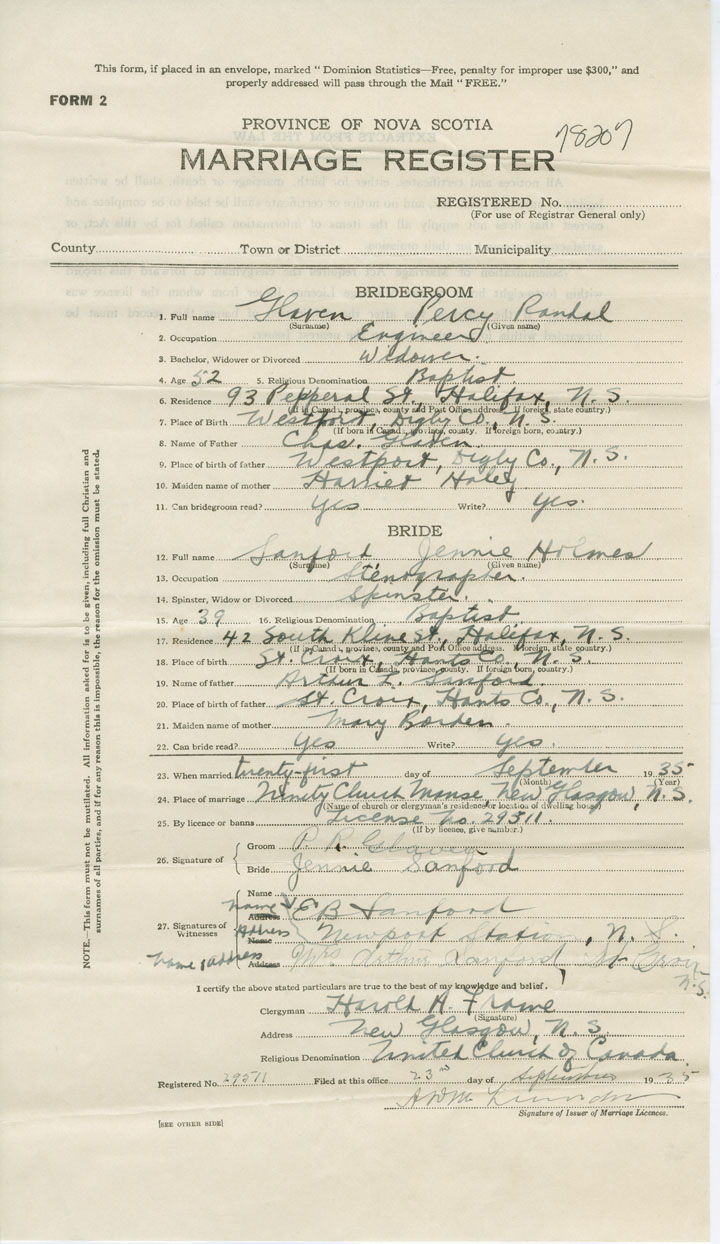 This form, if placed in an envelope, marked "Dominion Statistics—Free, penalty for improper use $300," and
properly addressed will pass through the Mail "FREE."
FORM 2
PROVINCE OF NOVA SCOTIA
78207
MARRIAGE REGISTER
REGISTERED No.
(For use of Registrar General only)
County Town or District Municipality
BRIDEGROOM
1. Full name Glaven Percy Randal
(Surname) (Given name)
2. Occupation Engineer
3. Bachelor, Widower or Divorced Widower.
4. Age 52 5. Religious Denomination Baptist
6. Residence 93 Pepperal St., Halifax, N. S.
(If in Canada, province, county and Post Office address. If foreign, state country.)
7. Place of Birth Westport, Digby Co., N. S.
(If born in Canada, province, county. If foreign born, country.)
8. Name of Father Chas. Glaven
9. Place of birth of father Westport, Digby Co., N. S.
10. Maiden name of mother Harriet Haley
11. Can bridegroom read? Yes Write? Yes.
BRIDE
12. Full name Sanford Jennie Holmes
(Surname) (Given name)
13. Occupation Stenographer.
14. Spinster, Widow or Divorced Spinster.
15. Age 39 16. Religious Denomination Baptist
17. Residence 42 South Kline St., Halifax, N. S.
(If in Canada, province, county and Post Office address. If foreign, state country.)
18. Place of birth St. Croix, Hants Co., N. S.
(If born in Canada, province, county. If foreign born, country.)
19. Name of father Arthur L. Sanford.
20. Place of birth of father St. Croix, Hants Co., N. S.
21. Maiden name of mother Mary Borden.
22. Can bride read? Yes Write? Yes.
23. When married twenty-first day of September 1935
(Month) (Year)
24. Place of marriage Trinity Church Manse, New Glasgow, N. S.
(Name of church or clergyman's residence or location of dwelling house)
25. By licence or banns License No. 29511.
(If by licence, give number.)
26. Signature of
Groom P. R. Glaven
Bride Jennie Sanford
27. Signatures of Witnesses
Name
Name Address E B Sanford
Address Name Newport Station, N. S.
Name & address Address Mrs Arthur Sanford St Croix
N.S.
I certify the above stated particulars are true to the best of my knowledge and belief.
Clergyman Harold A. Frame
(Signature)
Address New Glasgow, N. S.
Religious Denomination United Church of Canada.
Registered No. 29511 Filed at this office 23rd day of September 1935
Signature of Issuer of Marriage Licences.
[SEE OTHER SIDE]
NOTE.—This form must not be mutilated. All information asked for is to be given, including full Christian and
surnames of all parties, and if for any reason this is impossible, the reason for the omission must be stated.